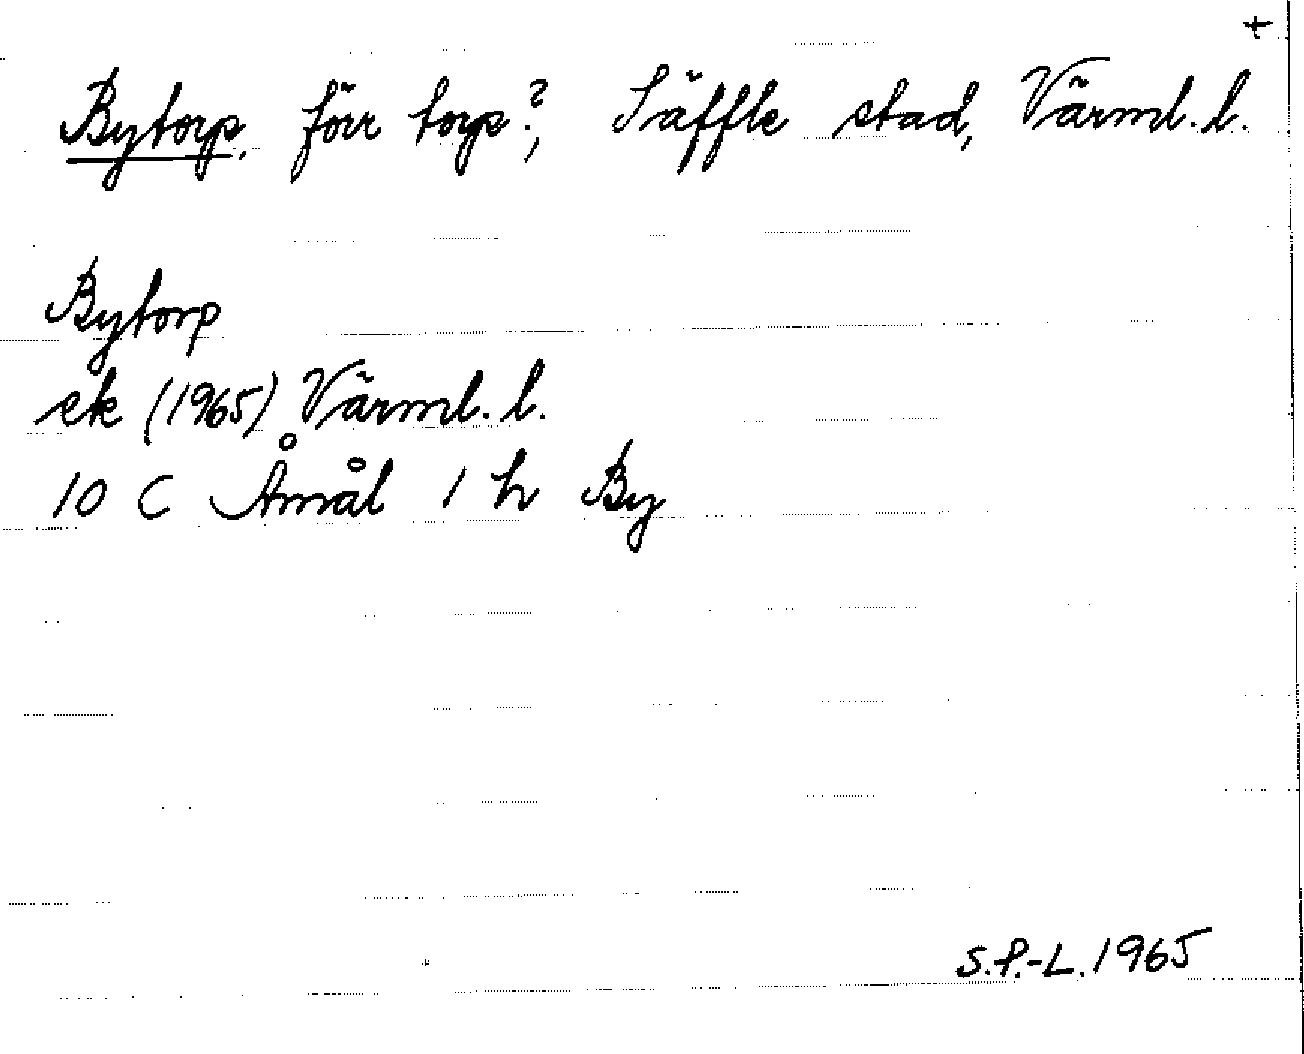 +
Bytorp, förr torp?, Säffle stad, Värml. l.
Bytorp
ek (1965) Värml. l.
10 C Åmål 1 h By
S.P.-L. 1965